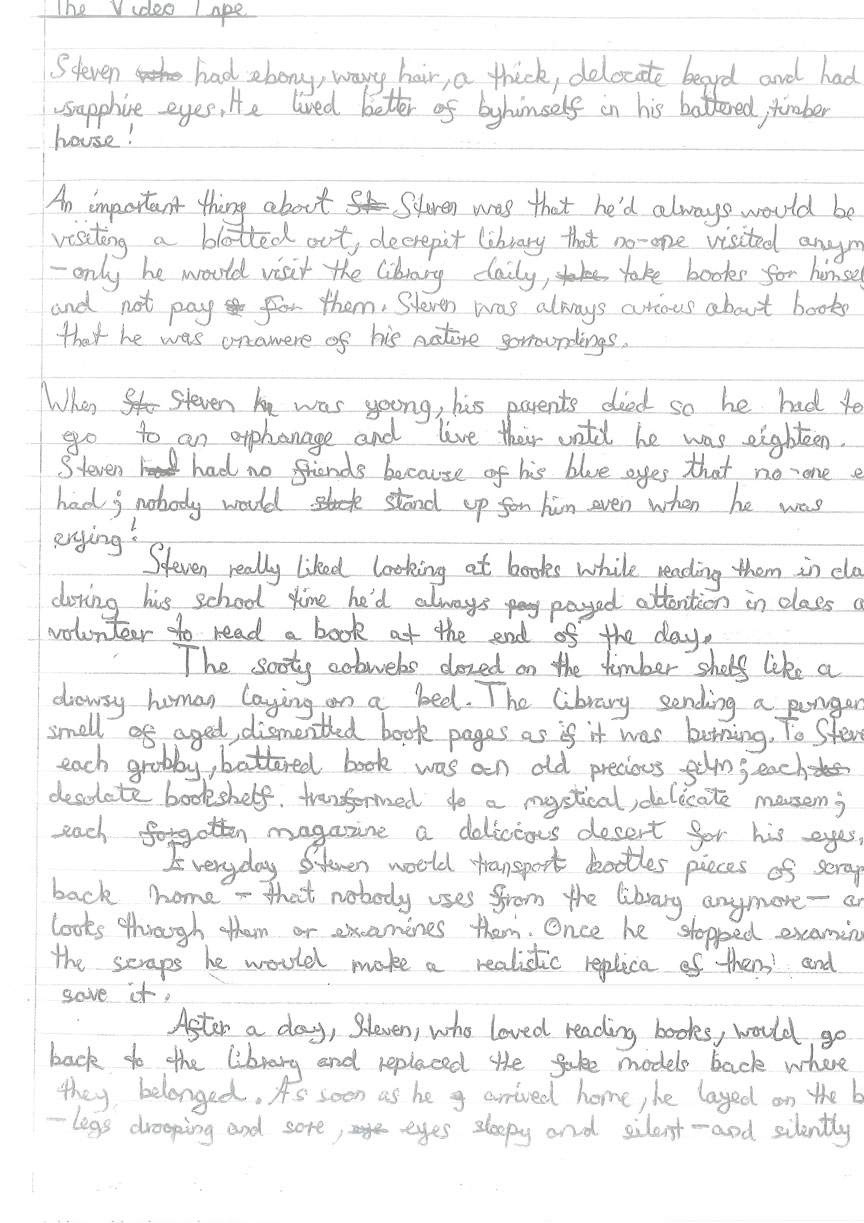 The Video Tape
Steven who had ebony, wavy hair, a thick, delocate beard and had
sapphire eyes. He lived better of byhimself in his battered, timber
house!
An important thing about St Steven was that he'd always would be
visiting a blotted out, decrepit library that no-one visited anym
-only he would visit the library daily, take take books for himsel
and not pay for them. Steven was always curious about books
that he was unawere of his nature sorroundings.
When St Steven was young, his parents died so he had to
go to an orphanage and live their until he was eighteen.
Steven had had no friends because of his blue eyes that no-one e
had; nobody would stand up for him even when he was
crying!
Steven really liked looking at books while reading them in cla
during his school time he'd always pay payed attention in class a
volunteer to read a book at the end of the day.
The sooty cobwebs dozed on the timber shelf like a
drowsy human laying on a bed. The library sending a pungen
smell of aged, dismentted book pages as if it was burning. To Steve
each grubby, battered book was an old precious film; each
desolate bookshelf. transformed to a mystical, delicate meusem;
each forgotten magazine a delicious desert for his eyes.
Everyday Steven would transport bootles pieces of scrap
back home - that nobody uses from the library anymore- an
looks through them or examines them. Once he stopped examin
the scraps he would make a realistic replica of them! and
save it.
After a day, Steven, who loved reading books, would go
back to the library and replaced the fake models back where
they belonged. As soon as he arrived home, he layed on the b
-legs drooping and sore, eye eyes sleepy and silent -and silently